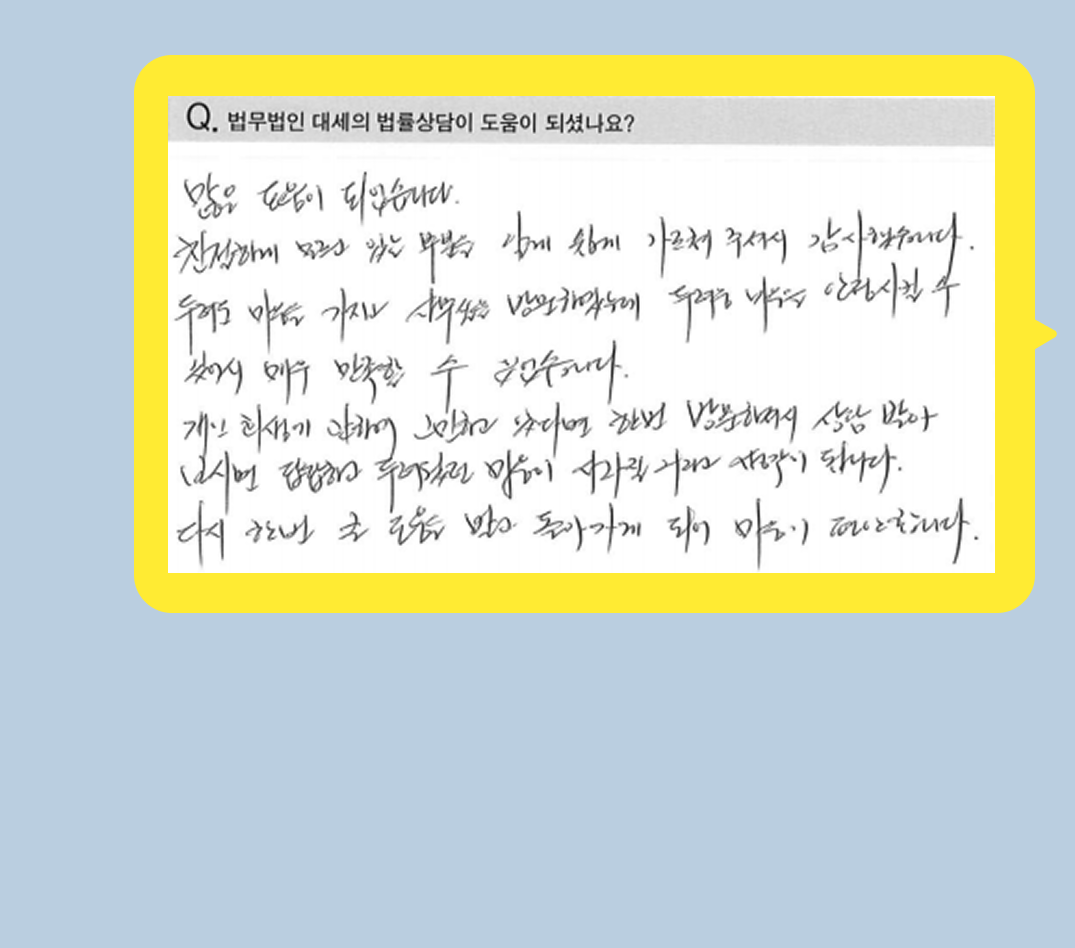 Q. 법무법인 대세의 법률상담이 도움이 되셨나요?
많은 도움이 되었습니다.
친절하게 모르고 있는 부분을 알게 쉽게 가르쳐 주셔서 감사했습니다.
두려운 마음을 가지고 사무실을 방문하였는데 두려운 마음을 안정시킬 수
있어서 매우 만족할 수 있었습니다.
개인 회생기 관하여 고민하고 있다면 한번 방문하셔서 상담 받아
보시면 답답하고 두려웠던 마음이 사라질 거라고 생각이 됩니다.
다시 한번 큰 도움을 받고 돌아가게 되어 마음이 편안합니다.